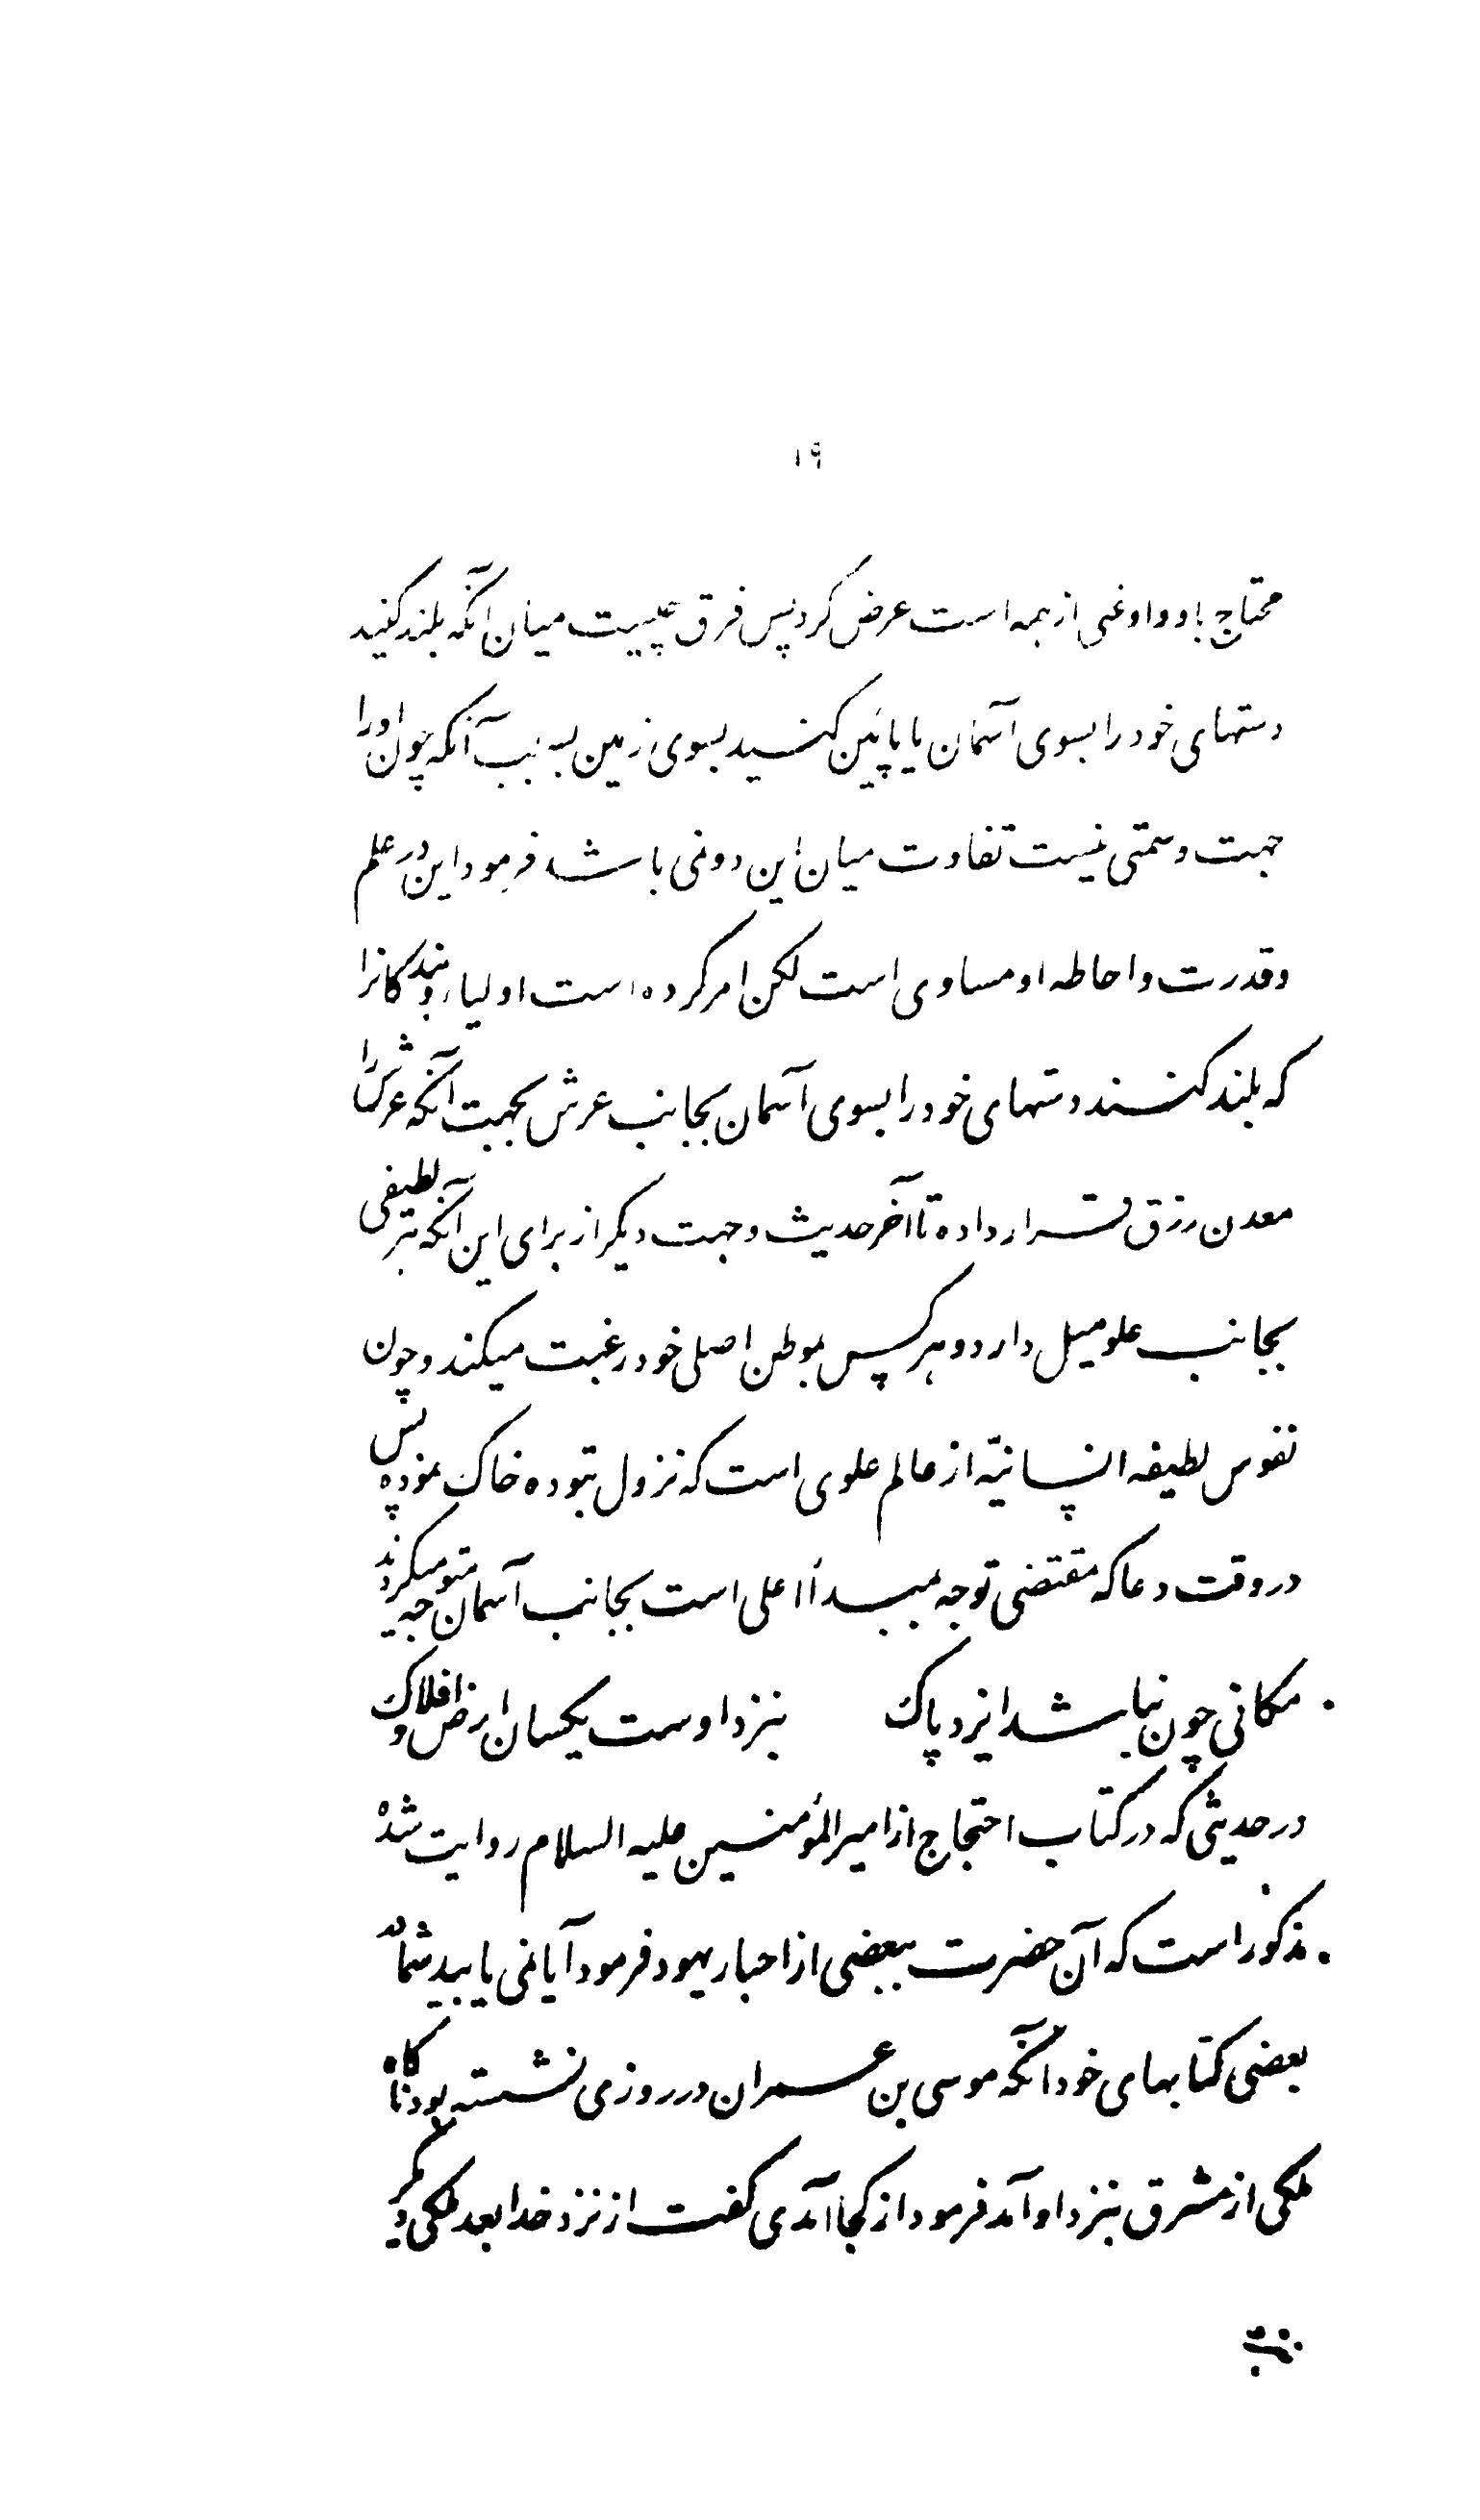 ۱۹
محتاج باو و او غنی از همه است عرض کرد پس فرق چیست میان آنکه بلند کنید
دستهای خود را بسوی آسمان یا پائین کنید بسوی زمین بسبب آنکه چون او را
جهت و سمتی نیست تفاوت میان این دو نمی باشد فرمود این در علم
و قدرت و احاطه او مساوی است لکن امر کرده است اولیاء و بندکانرا
که بلند کنند دستهای خود را بسوی آسمان بجانب عرش بجهت آنکه عرش را
معدن رزق قرار داده تا آخر حدیث و جهت دیگر از برای این آنکه هر لطیفی
بجانب علو میل دارد و هر کس بموطن اصلی خود رغبت میکند و چون
نفوس لطیفه انسانیّه از عالم علوی است که نزول بتوده خاک نموده پس
در وقت دعا که مقتضی توجه بمبدأ اعلی است بجانب آسمان متوجه میکردند
مکانی چون نباشد ایزد پاک نبزد اوست یکسان ارض و افلاک
در حدیثی که در کتاب احتجاج از امیرالمؤمنین علیه السلام روایت شده
مذکور است که آن حضرت ببعضی از احبار یهود فرمود آیا نمی یابید شما در
بعضی کتابهای خود آنکه موسی بن عمران در روزی نشسته بود ناکاه
ملکی از مشرق بنزد او آمد فرمود از کجا آمدی کفت از نزد خدا بعد ملکی دیگر